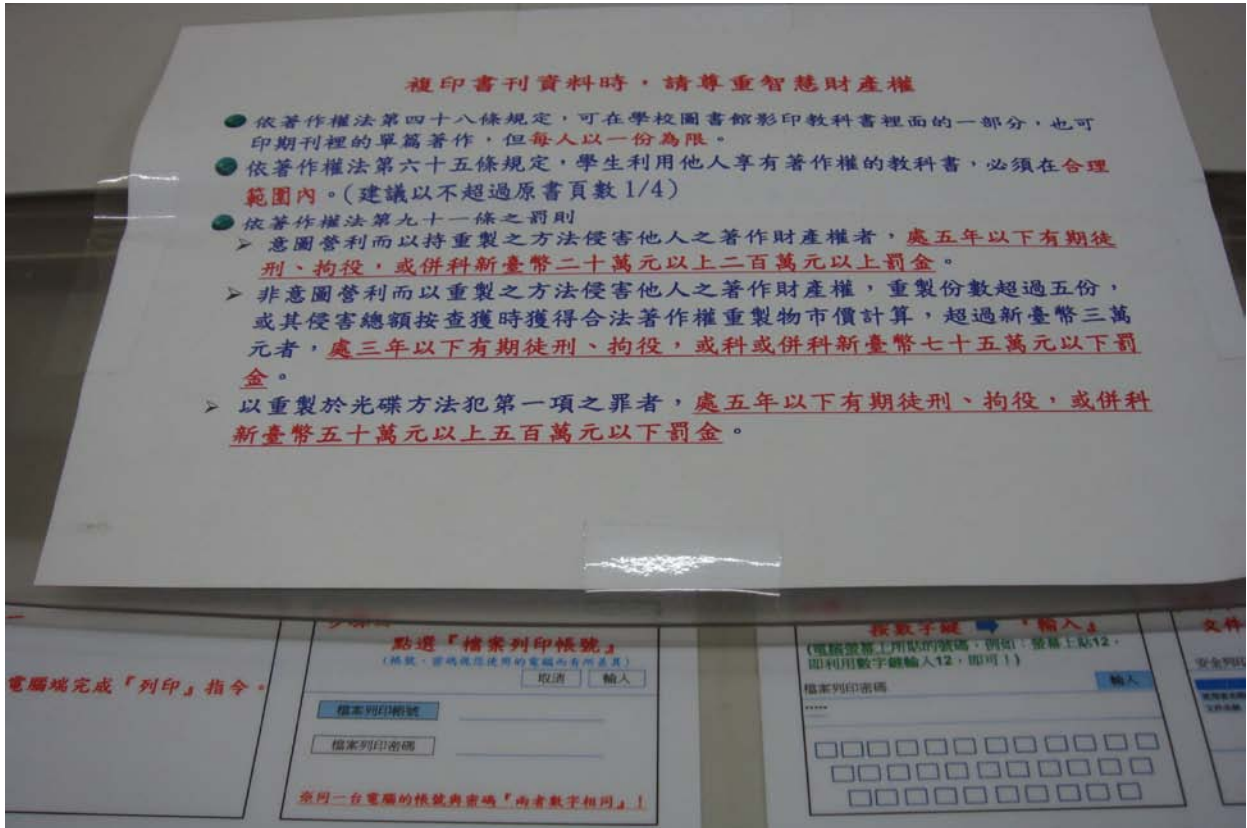 複印書刊資料時，請尊重智慧財產權
依著作權法第四十八條規定，可在學校圖書館影印教科書裡面的一部分，也可
印期刊裡的單篇著作，但每人以一份為限。
依著作權法第六十五條規定，學生利用他人享有著作權的教科書，必須在合理
範圍內。(建議以不超過原書頁數1/4)
依著作權法第九十一條之罰則
➢ 意圖營利而以持重製之方法侵害他人之著作財產權者，處五年以下有期徒
刑、拘役，或併科新臺幣二十萬元以上二百萬元以上罰金。
➢ 非意圖營利而以重製之方法侵害他人之著作財產權，重製份數超過五份，
或其侵害總額按查獲時獲得合法著作權重製物市價計算，超過新臺幣三萬
元者，處三年以下有期徒刑、拘役，或科或併科新臺幣七十五萬元以下罰
金。
➢ 以重製於光碟方法犯第一項之罪者，處五年以下有期徒刑、拘役，或併科
新臺幣五十萬元以上五百萬元以下罰金。
電腦端完成『列印』指令。
點選『檔案列印帳號』
(帳號、密碼視您使用的電腦而有所差異)
取消 輸入
檔案列印帳號
檔案列印密碼
※同一台電腦的帳號與密碼『兩者數字相同』！
按數字鍵 ➡ 『輸入』
(電腦螢幕上所貼的號碼，例如：螢幕上貼12，
即利用數字鍵輸入12，即可！)
檔案列印密碼 輸入
*****
文件
安全列印
文件名稱